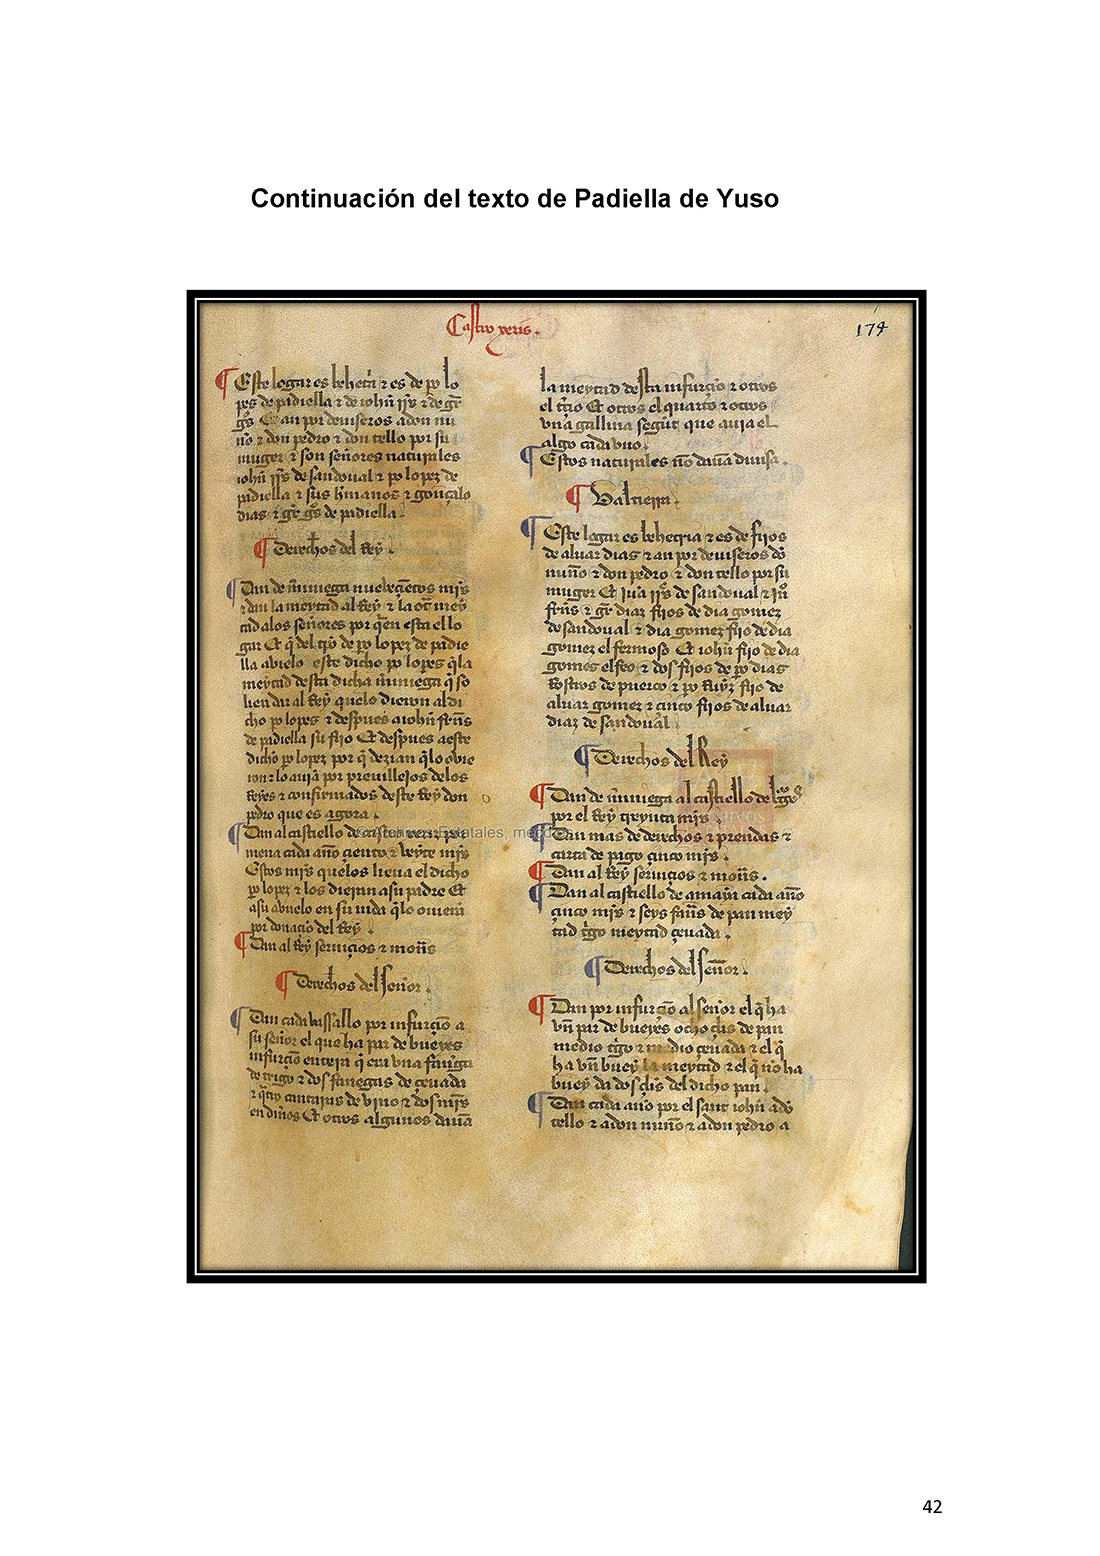 Continuación del texto de Padiella de Yuso
Castro xeris.
174
¶ Este logar es behetria τ es de po lo
pes de padiella τ de iohñ rrs τ de gr
gs Et an por deuiseros a don nu
ño τ don pedro τ don tello por su
muger τ son señores naturales
iohñ rrs de sandoual τ po lopez de
padiella τ sus hmanos τ gonçalo
dias τ gr gs de padiella.
¶ Derechos del Rey.
¶ Dan de mminiega nueueçientos mrs
τ dan la meytad al Rey τ la otra mey
tad a los señores por qen esta el lo
gar Et q del tpo de po lopez de padie
lla abuelo este dicho po lopes q la
meytad desta dicha miniega q so
lien dar al Rey que lo dieron al di
cho po lopes τ despues a iohñ frrns
de padiella su fijo Et despues a este
dicho po lopez por q dezian q lo ovie
ron τ lo auiā por preuillejos de los
Reyes τ confirmados deste Rey don
pedro que es agora.
¶ Dan al castiello de castro xeris por
mena cada año çiento τ beyte mrs
Estos mrs que los lieua el dicho
po lopez τ los dieran a su padre Et
a su abuelo en su uida q lo ouiera
por donaçio del Rey.
¶ Dan al Rey seruiçios τ monds
¶ Derechos del señor.
¶ Dan cada vassallo por infurçio a
su señor el que ha par de bueyes
infurçio entera q era vna fanega
de trigo τ dos fanegas de çeuada
τ qtro cantaras de vino τ dos mrs
en dinos Et otros algunos dauā
la meytad desta infurçio τ otros
el tçio Et otros el quarto τ otros
vna gallina segūt que auia el
algo cada vno.
¶ Estos naturales no dauā diuisa.
¶ Valtierra.
¶ Este logar es behetria τ es de fijos
de aluar dias τ an por deuiseros do
nuño τ don pedro τ don tello por su
muger Et iua rrs de sandoual τ iuo
frrns τ gr diaz fijos de dia gomez
de sandoual τ dia gomez fijo de dia
gomez el fermoso Et iohñ fijo de dia
gomes el feo τ dos fijos de po dias
Rostros de puerco τ po Ruyz fijo de
aluar gomez τ çinco fijos de aluar
diaz de sandoual.
¶ Derechos del Rey
¶ Dan de mminiega al castiello de
por el Rey treynta mrs.
¶ Dan mas de derechos τ prendas τ
carta de pago çinco mrs.
¶ Dan al Rey seruiçios τ monds.
¶ Dan al castiello de amaya cada año
çinco mrs τ seys fans de pan mey
tad tgo meytad çeuada.
¶ Derechos del señor.
¶ Dan por infurçio al señor el q ha
vn par de bueyes ocho çls de pan
medio tgo τ medio çeuada τ el q
ha vn buey la meytad τ el q no ha
buey da dos çls del dicho pan.
¶ Dan cada año por el sant iohñ a do
tello τ a don nuño τ a don pedro a
© Archivos Estatales, mecd.es
42